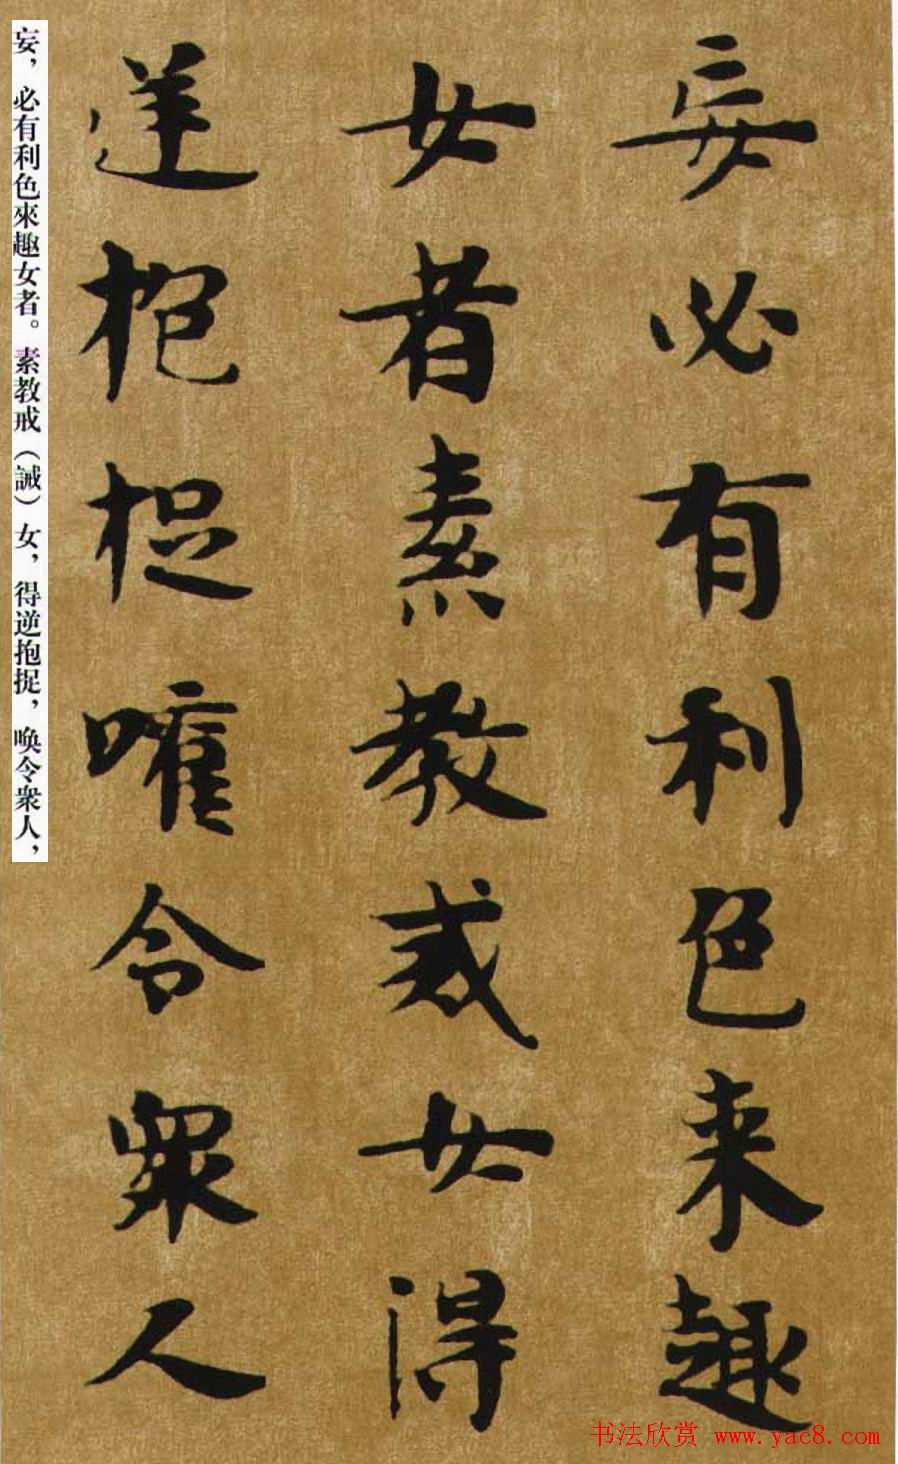 妄必有利色来趣
女者素教戒女得
逆抱捉唤令衆人
妄，必有利色來趣女者。素教戒（誡）女，得逆抱捉，唤令衆人，
书法欣赏 www.yac8.com